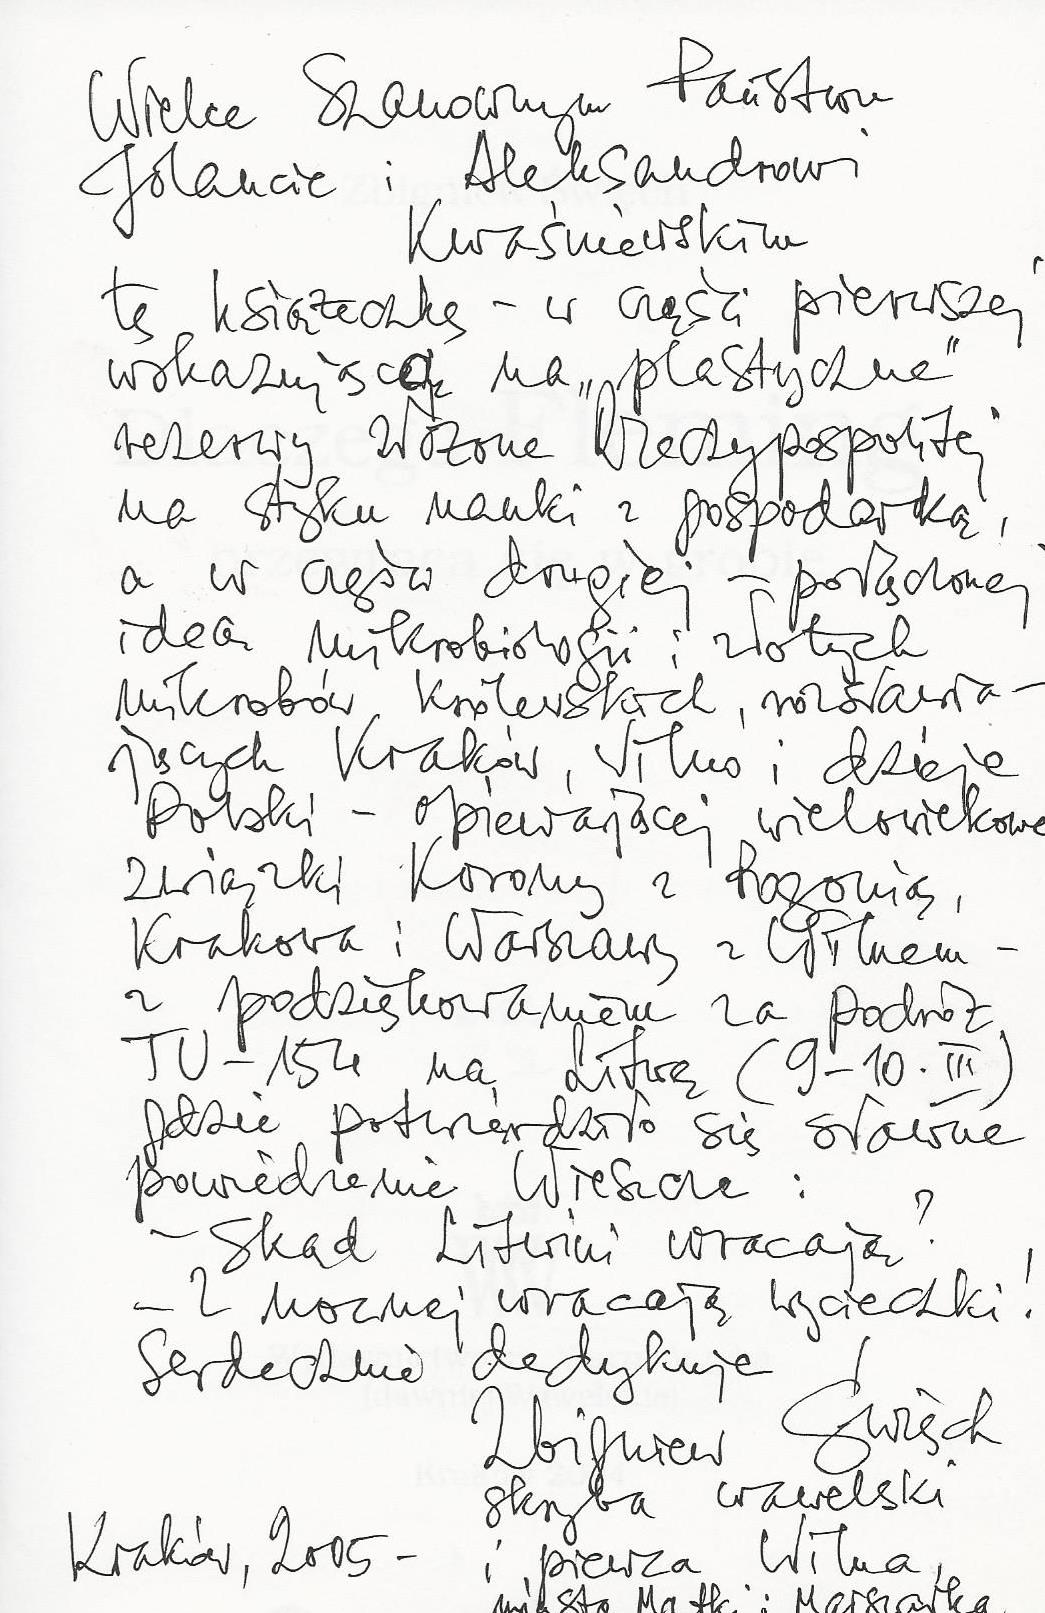 Wielce Szanownym Państwu
Jolancie i Aleksandrowi
Kwaśniewskim
tę książeczkę – w części pierwszej
wskazującą na „plastyczne”
rezerwy złożone Rzeczypospolitej
na styku nauki z gospodarką,
a w części drugiej – połączonej
ideą mikrobiologii i złotych
mikrobów królewskich, rozsławia-
jących Kraków, Wilno i dzieje
Polski – opiewającej wielowiekowe
związki Korony z Pogonią,
Krakowa i Warszawy z Wilnem –
z podziękowaniem za podróż
TU-154 na Litwę (9–10. III)
gdzie potwierdziło się sławne
powiedzenie Wieszcza :
– Skąd Litwini wracają?
– Z nocnej wracają wycieczki!
Serdecznie dedykuję
Zbigniew Święch
skryba wawelski
Kraków, 2005 – i piewca Wilna,
miasta Matki i Marszałka